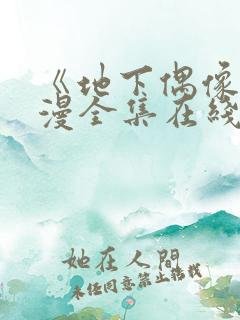 《地下偶像
漫全集在线
她在人間
未经同意禁止搬载